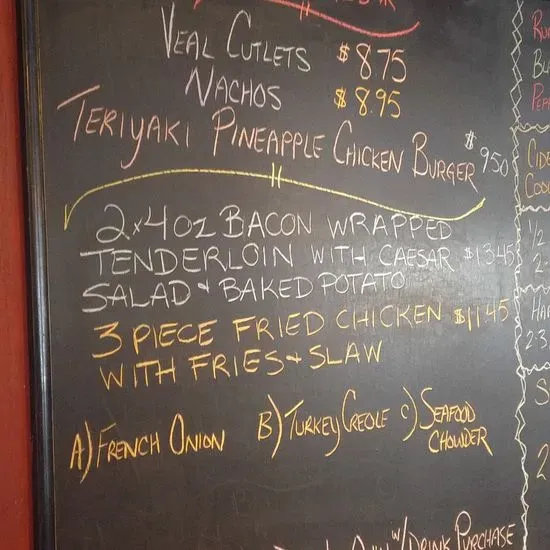 VEAL CUTLETS $8.75
NACHOS $8.95
TERIYAKI PINEAPPLE CHICKEN BURGER $9.50
2x4oz BACON WRAPPED
TENDERLOIN WITH CAESAR $13.45
SALAD & BAKED POTATO
3 PIECE FRIED CHICKEN $11.45
WITH FRIES & SLAW
A) FRENCH ONION B) TURKEY CREOLE C) SEAFOOD
CHOWDER
W/ DRINK PURCHASE
CIDE
COO
1/2